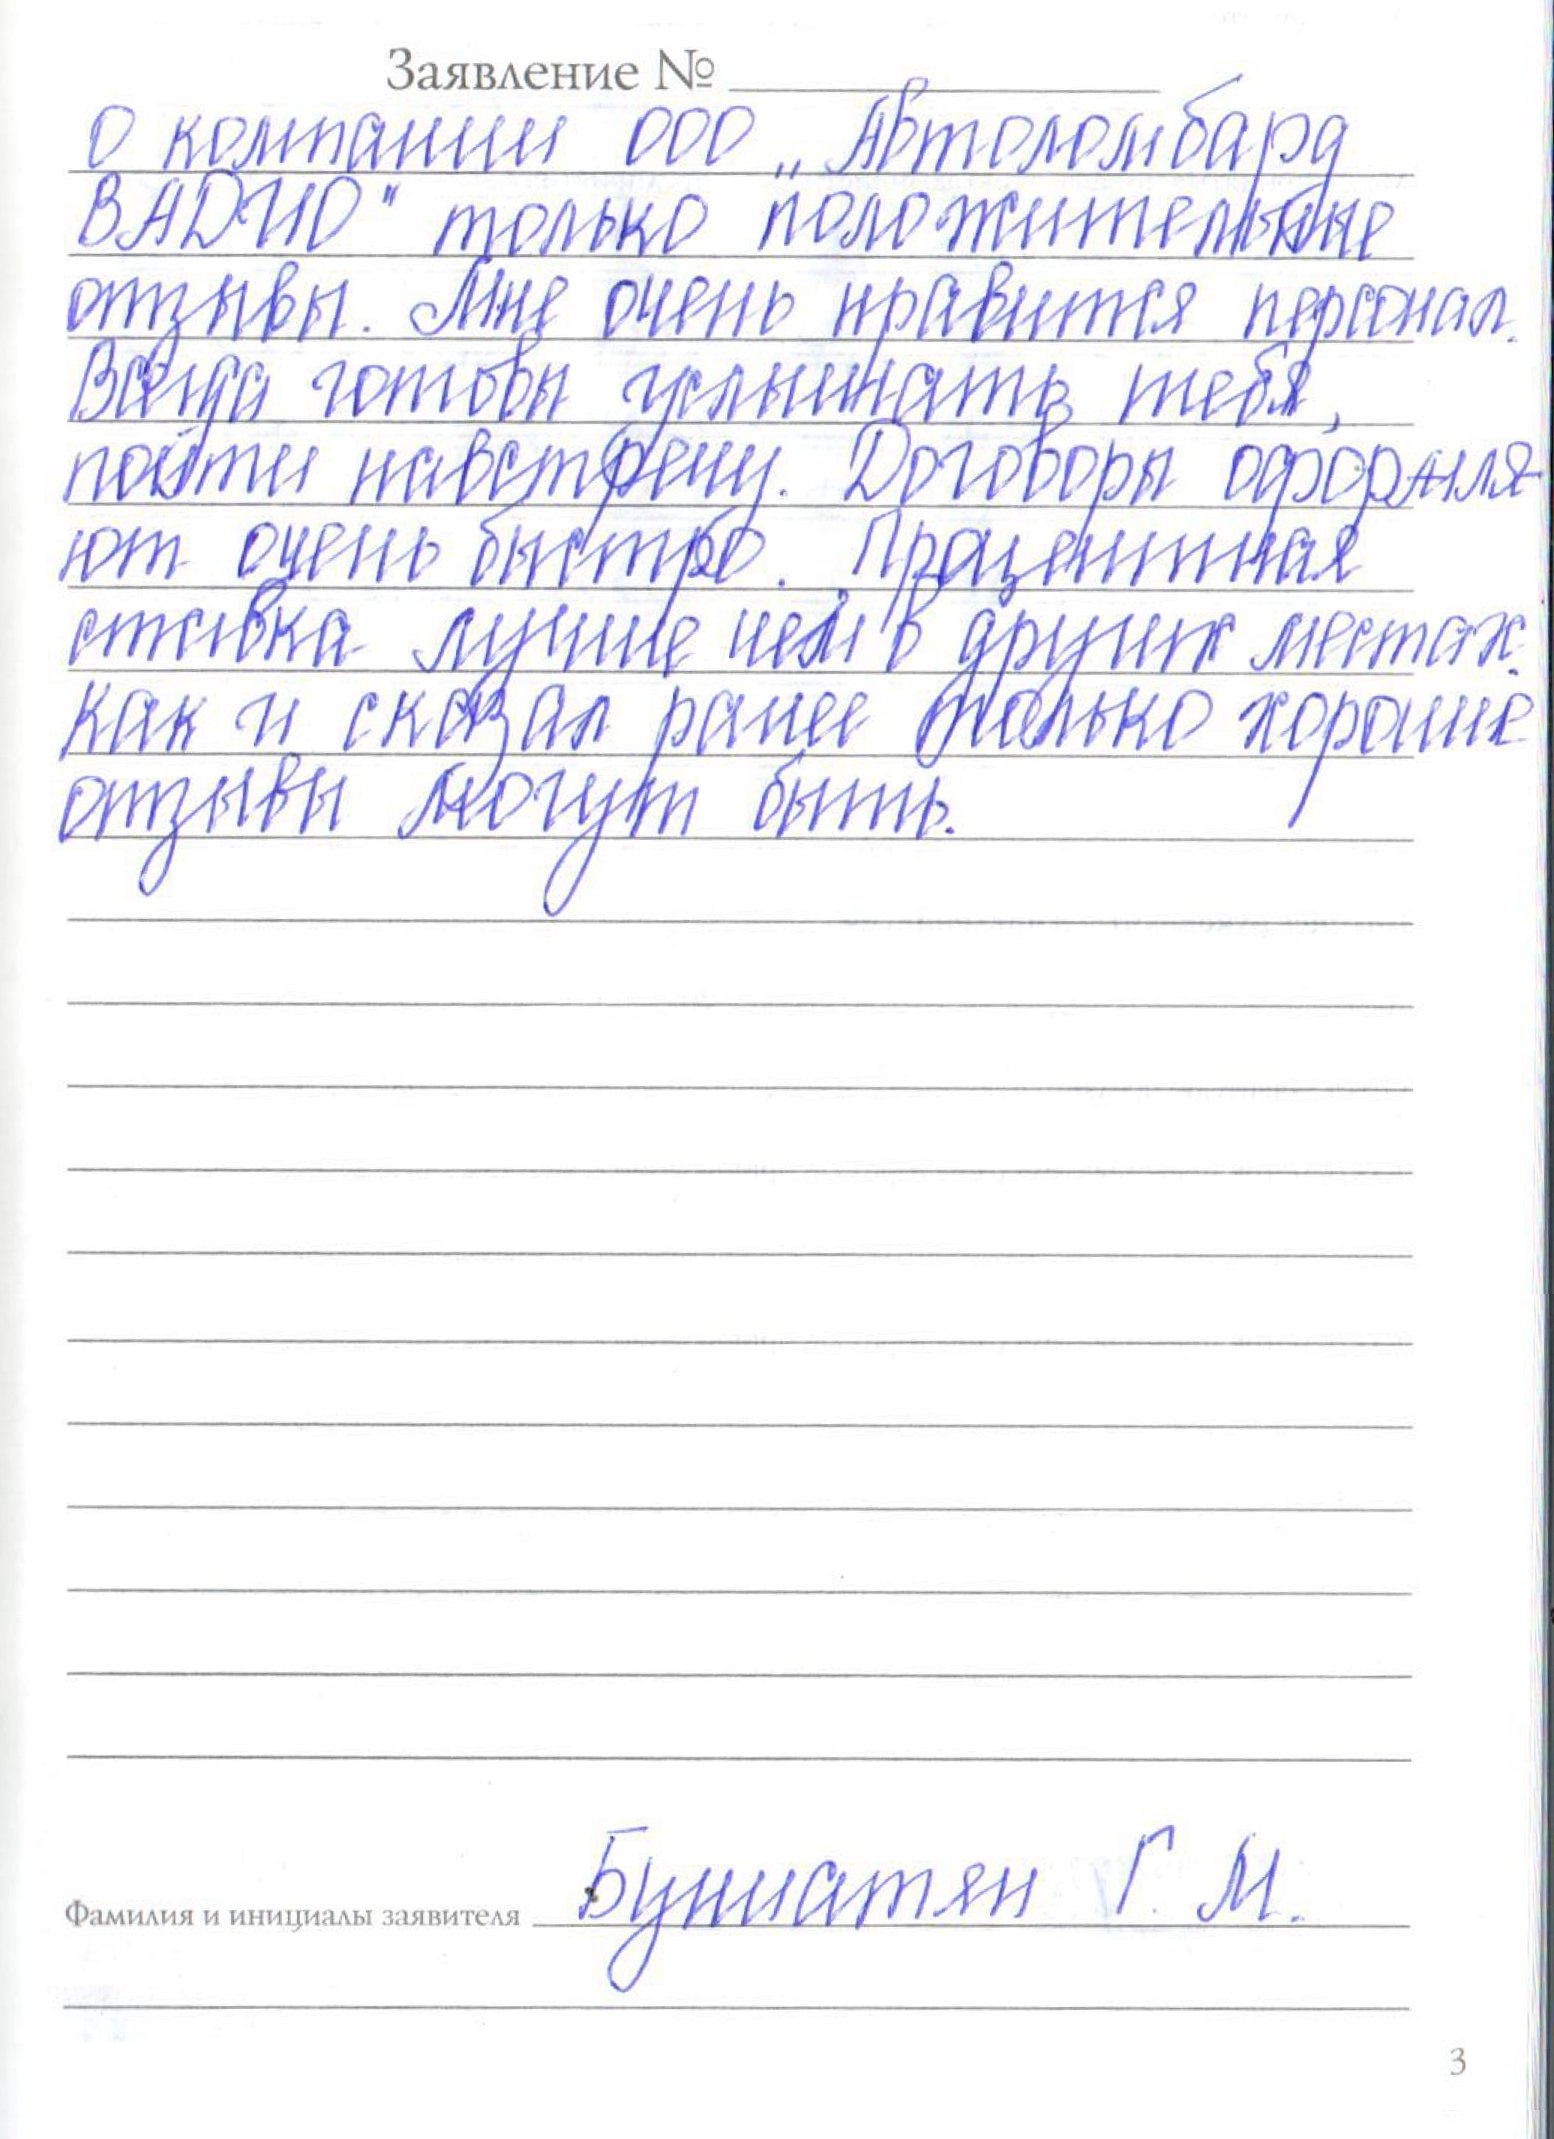 Заявление №
О компании ООО „Автоломбард
ВАДИО" только положительные
отзывы. Мне очень нравится персонал.
Всегда готовы услышать тебя,
пойти навстречу. Договоры оформля-
ют очень быстро. Процентная
ставка лучше чем в других местах.
Как и сказал ранее только хорошие
отзывы могут быть.
Фамилия и инициалы заявителя Г. М.
3